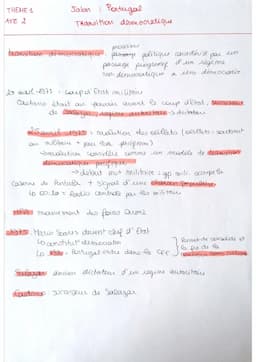 THEME 1
AXE 2
Salon : Portugal
Transition démocratique
transition démocratique : processus
passage politique caractérisé par un
passage progressif d'un régime
non démocratique à être démocratie
25 avril 1974 : coup d'Etat militaire
Caetano était au pouvoir avant le coup d'Etat,
de Salazar régime autoritaire → dictateur
25 avril 1974 = révolution des oeillets (oeillets :
au militaire + peu
→ révolution considérée comme un modèle de transition
démocratique pacifique
→ début mvt militaire
Caserne de + signal d'une chanson populaire
la = Radio contrôlé par les militaires
mouvement des forces Armée
1976 : Mario Soares devient chef d'Etat
↳ constitut° démocratie
↳ 1986 : Portugal entre dans la CEE
et
la fin de la
Salazar : ancien dictateur d'un régime autoritaire
Caetano : successeur de Salazar